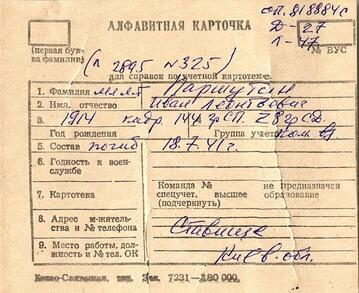 сп. 218884с
АЛФАВИТНАЯ КАРТОЧКА
Д-27
Л-17
(первая бук-
ва фамилии)
№ ВУС
(п 2895 №325)
для справок по учетной картотеке
1. Фамилия Паршутин
2. Имя, отчество Иван Леонтьевич
3. 1914 кадр. 144 гсп. 28 гсд.
Год рождения Группа учета
5. Состав погиб 18.7.41г.
6. Годность к воен-
службе
7. Картотека
Команда № не предназначен
спецучет, высшее образование
(подчеркнуть)
8. Адрес м-житель-
ства и № телефона
Ставище
9. Место работы, дол-
жность и № тел. ОК
Киев. обл.
Киево-Святошин. тип. Зак. 7231—180 000.